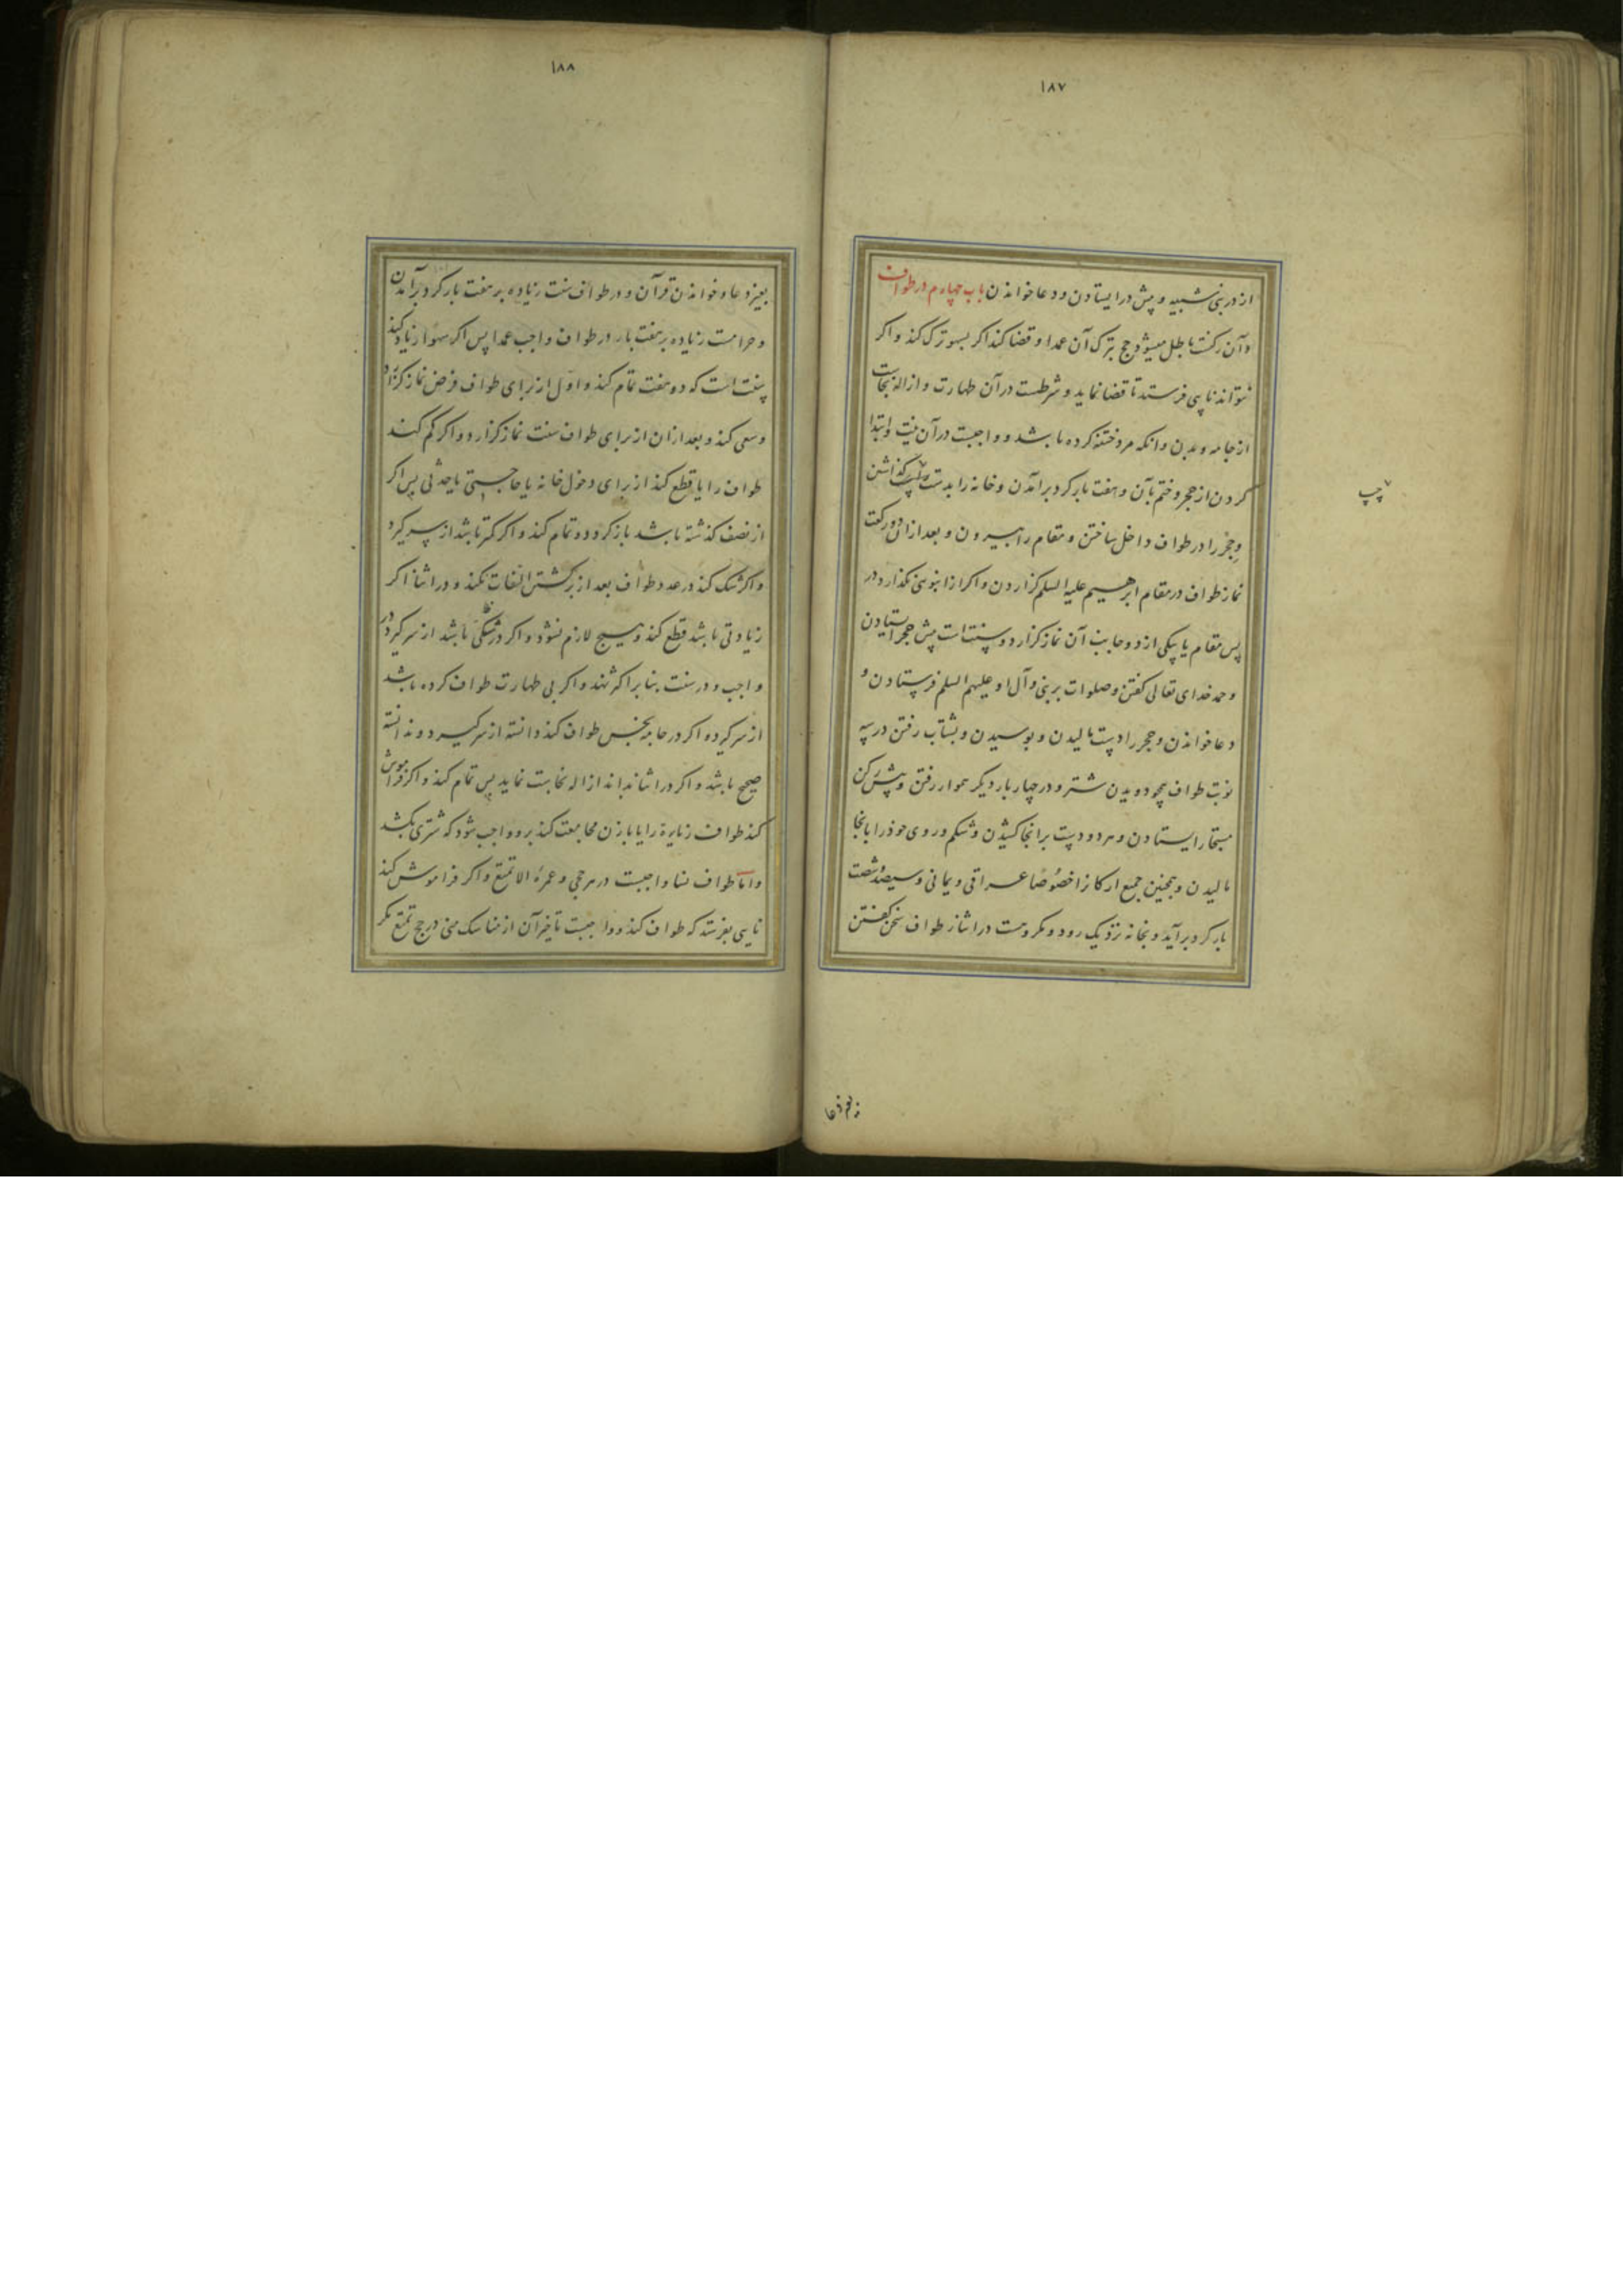 ١٨٧
از در بنی شیبه و پیش در ایستادن و دعا خواندن باب چهارم در طواف
وآن رکنست باطل میشود حج بترک آن عمدا و قضا کند اکر بسهو ترک کند و اکر
نتواند نایبی فرستد تا قضا نماید و شرطست در آن طهارت و ازالهٔ نجاست
از جامه و بدن و انکه مرد ختنه کرده باشد و واجبست در آن نیت و ابتدا
کردن از حجر و ختم بآن و هفت بار کرد برآمدن و خانه را بدست چپ کذاشتن
وحِجْر را در طواف داخل ساختن و مقام را بیرون و بعد ازان دو رکعت
نماز طواف در مقام ابرهیم علیه السلم کزاردن و اکر از انبوهی نکذارد در
پس مقام یا بیکی از دو جانب آن نماز کزارد و سنت است پیش حجر ایستادن
و حمد خدای تعالی کفتن و صلوات بر نبی و آل او علیهم السلم فرستادن و
دعا خواندن و حجر را دست مالیدن و بوسیدن و بشتاب رفتن در سه
نوبت طواف همچو دویدن شتر و در چهار بار دیکر هموار رفتن و پیش رکن
مستجار ایستادن و هر دو دست برانجا کشیدن و شکم و روی خوذ را بانجا
مالیدن و همچنین جمیع ارکانرا خصُوصًا عراقی و یمانی و سیصد و شصت
بار کرد برآید و بخانه نزدیک رود و مکروهست در اثناء طواف سخن کفتن
چپ
بغیر دعا
١٨٨
بغیر دعا و خواندن قرآن و در طواف سنت زیاده بر هفت بار کرد برآمدن
و حرامست زیاده بر هفت بار در طواف واجب عمدا پس اکر سهوا زیاد کند
سنت است که دو هفت تمام کند و اوّل از برای طواف فرض نماز کزارد
وسعی کند و بعد ازان از برای طواف سنت نماز کزارد و اکر کم کند
طواف را یا قطع کند از برای دخول خانه یا حاجتی یا حدثی پس اکر
از نصف کذشته باشد باز کردد و تمام کند و اکر کمتر باشد از سر کیرد
و اکر شک کند در عدد طواف بعد از برکشتن التفات نکند و در اثنا اکر
زیادتی باشد قطع کند و هیچ لازم نشود و اکر در کمی باشد از سر کیرد در
واجب و در سنت بنا بر اکثر نهد و اکر بی طهارت طواف کرده باشد
از سر کیرد و اکر در جامهٔ نجس طواف کند دانسته از سر کیرد و ندانسته
صحیح باشد و اکر در اثنا بداند ازاله نجاست نماید پس تمام کند و اکر فراموش
کند طواف زیارة را یا با زن مجامعت کند برو واجب شود که شتری بکشد
وامّا طواف نسا واجبست در هر حجی و عمرهٔ الا تمتع و اکر فراموش کند
نایبی بفرستد که طواف کند و واجبست تأخیر آن از مناسک منی در حج تمتع مکر